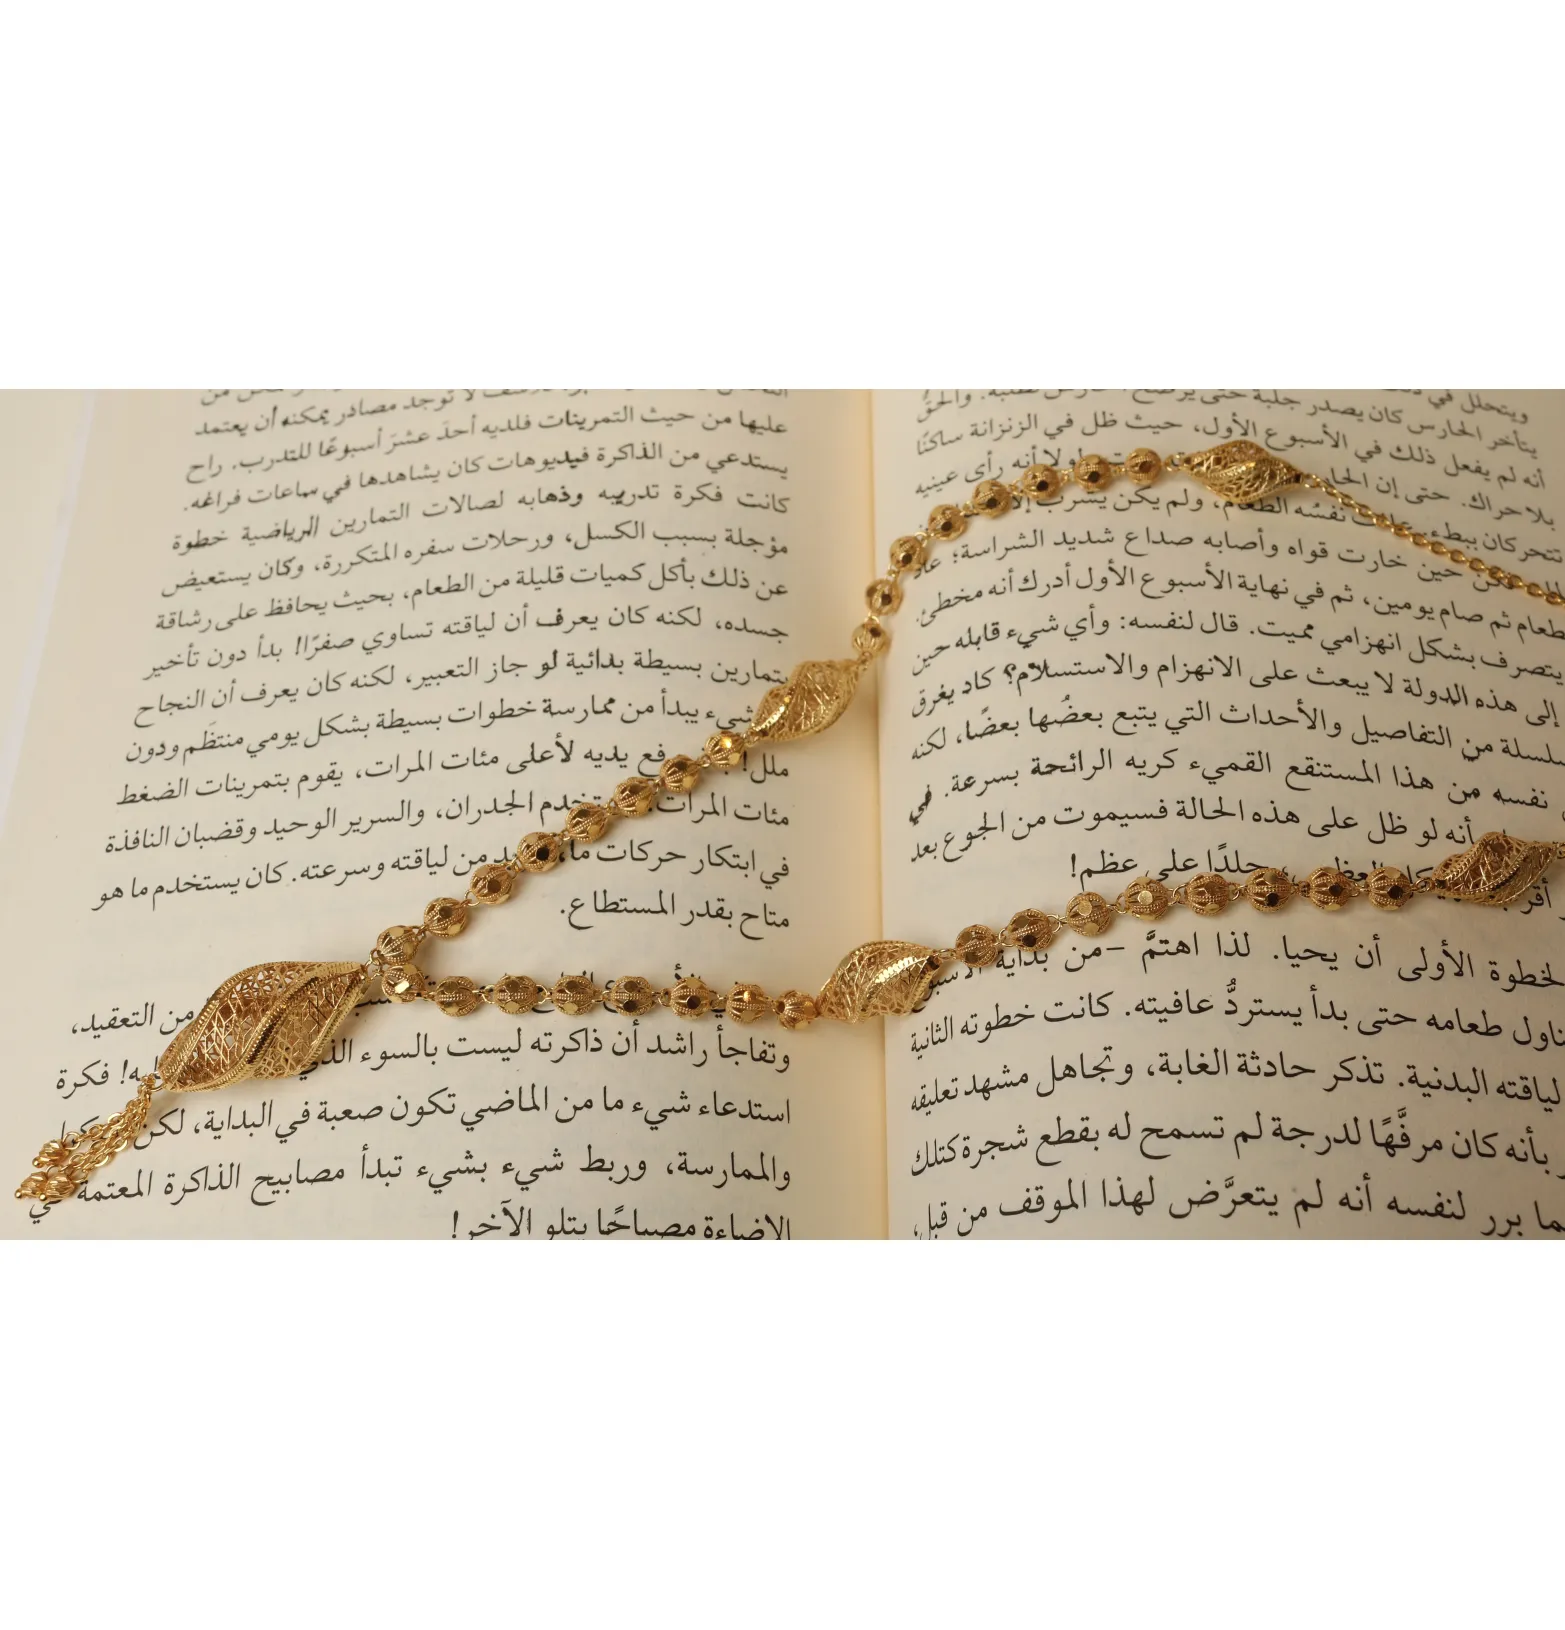 ويتحلل في
يتأخر الحارس كان يصدر جلبة حتى يرضخ الحارس لطلبه. والحقُّ
أنه لم يفعل ذلك في الأسبوع الأول، حيث ظل في الزنزانة ساكنًا
بلا حراك. حتى إن الحا لولا أنه رأى عينيه
تتحركان ببطء. عافت نفسُه الطعام، ولم يكن يشرب إلا
الماء لكن حين خارت قواه وأصابه صداع شديد الشراسة؛ عاد
طعام ثم صام يومين، ثم في نهاية الأسبوع الأول أدرك أنه مخطئ.
يتصرف بشكل انهزامي مميت. قال لنفسه: وأي شيء قابله حين
إلى هذه الدولة لا يبعث على الانهزام والاستسلام؟ كاد يغرق
سلسلة من التفاصيل والأحداث التي يتبع بعضُها بعضًا، لكنه
نفسه من هذا المستنقع القميء كريه الرائحة بسرعة. في
أنه لو ظل على هذه الحالة فسيموت من الجوع بعد
أقر العظم جلدًا على عظم!
لخطوة الأولى أن يحيا. لذا اهتمَّ -من بداية الأسبوع
ناول طعامه حتى بدأ يستردُّ عافيته. كانت خطوته الثانية
لياقته البدنية. تذكر حادثة الغابة، وتجاهل مشهد تعليقه
بأنه كان مرفَّهًا لدرجة لم تسمح له بقطع شجرة كتلك
ما برر لنفسه أنه لم يتعرَّض لهذا الموقف من قبل،
لا توجد مصادر يمكنه أن يعتمد
عليها من حيث التمرينات فلديه أحدَ عشرَ أسبوعًا للتدرب. راح
يستدعي من الذاكرة فيديوهات كان يشاهدها في ساعات فراغه.
كانت فكرة تدريبه وذهابه لصالات التمارين الرياضية خطوة
مؤجلة بسبب الكسل، ورحلات سفره المتكررة، وكان يستعيض
عن ذلك بأكل كميات قليلة من الطعام، بحيث يحافظ على رشاقة
جسده، لكنه كان يعرف أن لياقته تساوي صفرًا! بدأ دون تأخير
بتمارين بسيطة بدائية لو جاز التعبير، لكنه كان يعرف أن النجاح
شيء يبدأ من ممارسة خطوات بسيطة بشكل يومي منتظَم ودون
ملل! فع يديه لأعلى مئات المرات، يقوم بتمرينات الضغط
مئات المرات، تخدم الجدران، والسرير الوحيد وقضبان النافذة
في ابتكار حركات ما، يد من لياقته وسرعته. كان يستخدم ما هو
متاح بقدر المستطاع.
من التعقيد،
وتفاجأ راشد أن ذاكرته ليست بالسوء الذي به! فكرة
استدعاء شيء ما من الماضي تكون صعبة في البداية، لكن
والممارسة، وربط شيء بشيء تبدأ مصابيح الذاكرة المعتمة في
الإضاءة مصباحًا يتلو الآخر!